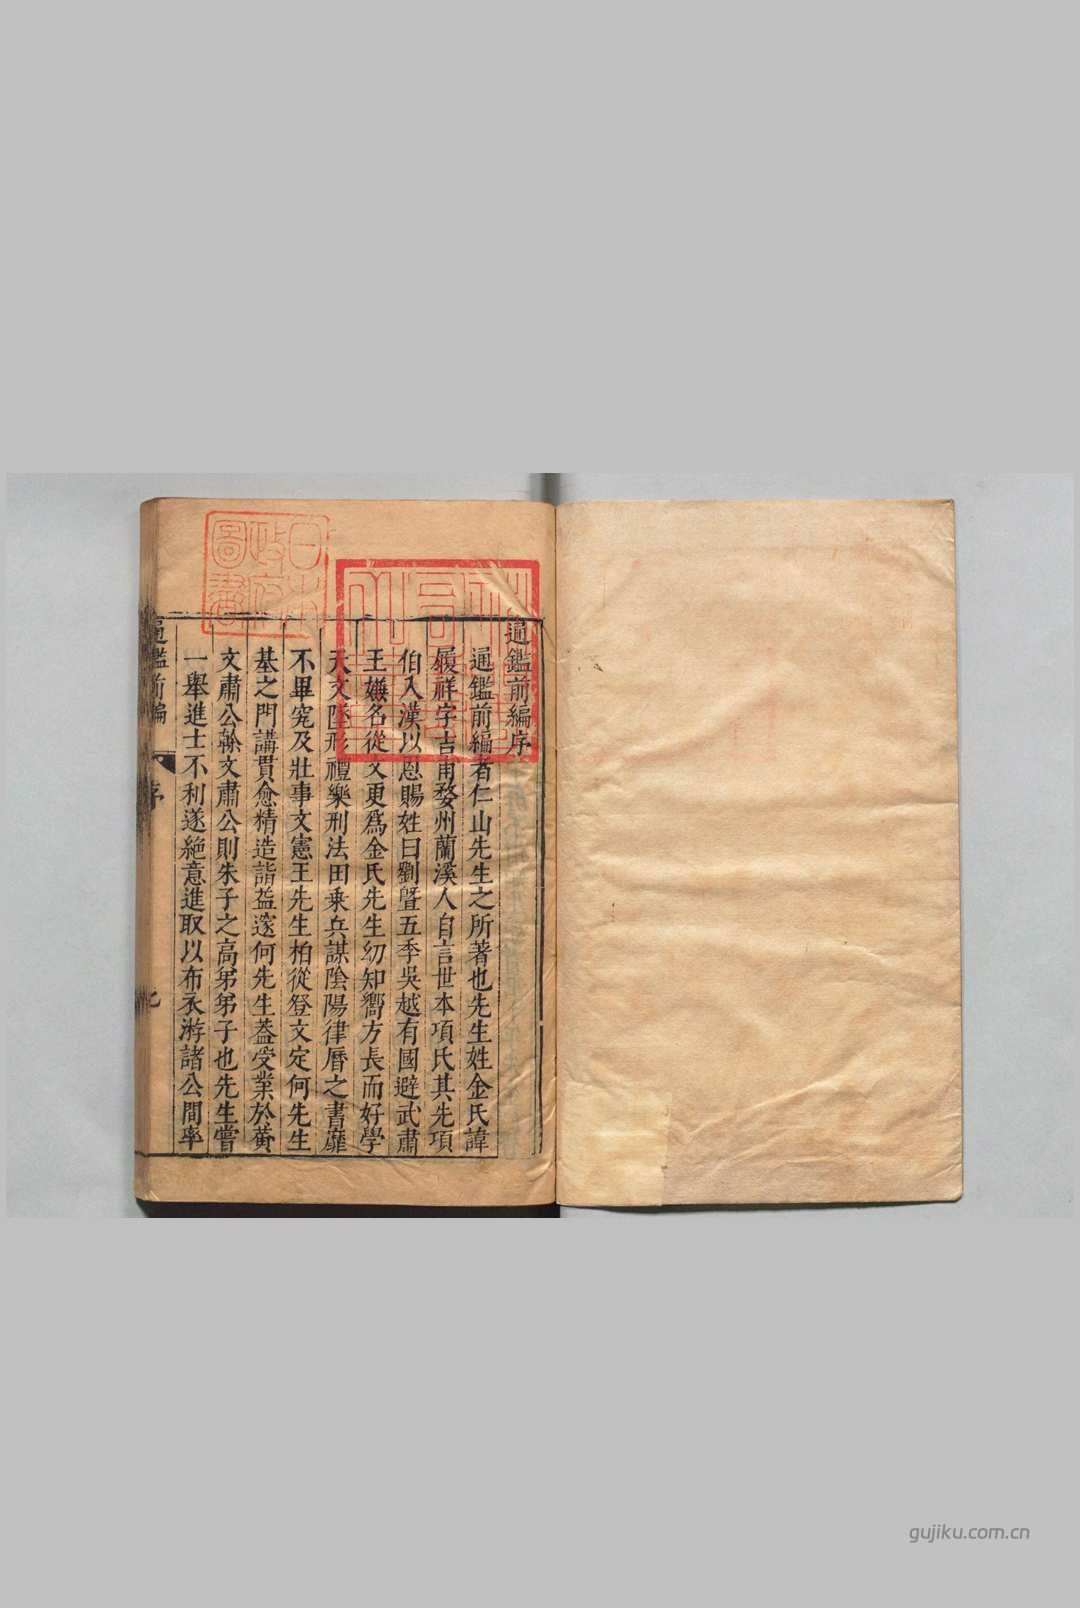 通鑑前編序
通鑑前編者仁山先生之所著也先生姓金氏諱
履祥字吉甫婺州蘭溪人自言世本項氏其先項
伯入漢以恩賜姓曰劉曁五季吳越有國避武肅
王嫌名從文更爲金氏先生幼知嚮方長而好學
天文墬形禮樂刑法田乗兵謀隂陽律厝之書靡
不畢究及壯事文憲王先生柏從登文定何先生
基之門講貫愈精造詣益邃何先生葢受業於黃
文肅公榦文肅公則朱子之高弟弟子也先生嘗
一舉進士不利遂絶意進取以布衣游諸公間率
通鑑前編
序
日本政府圖書
gujiku.com.cn